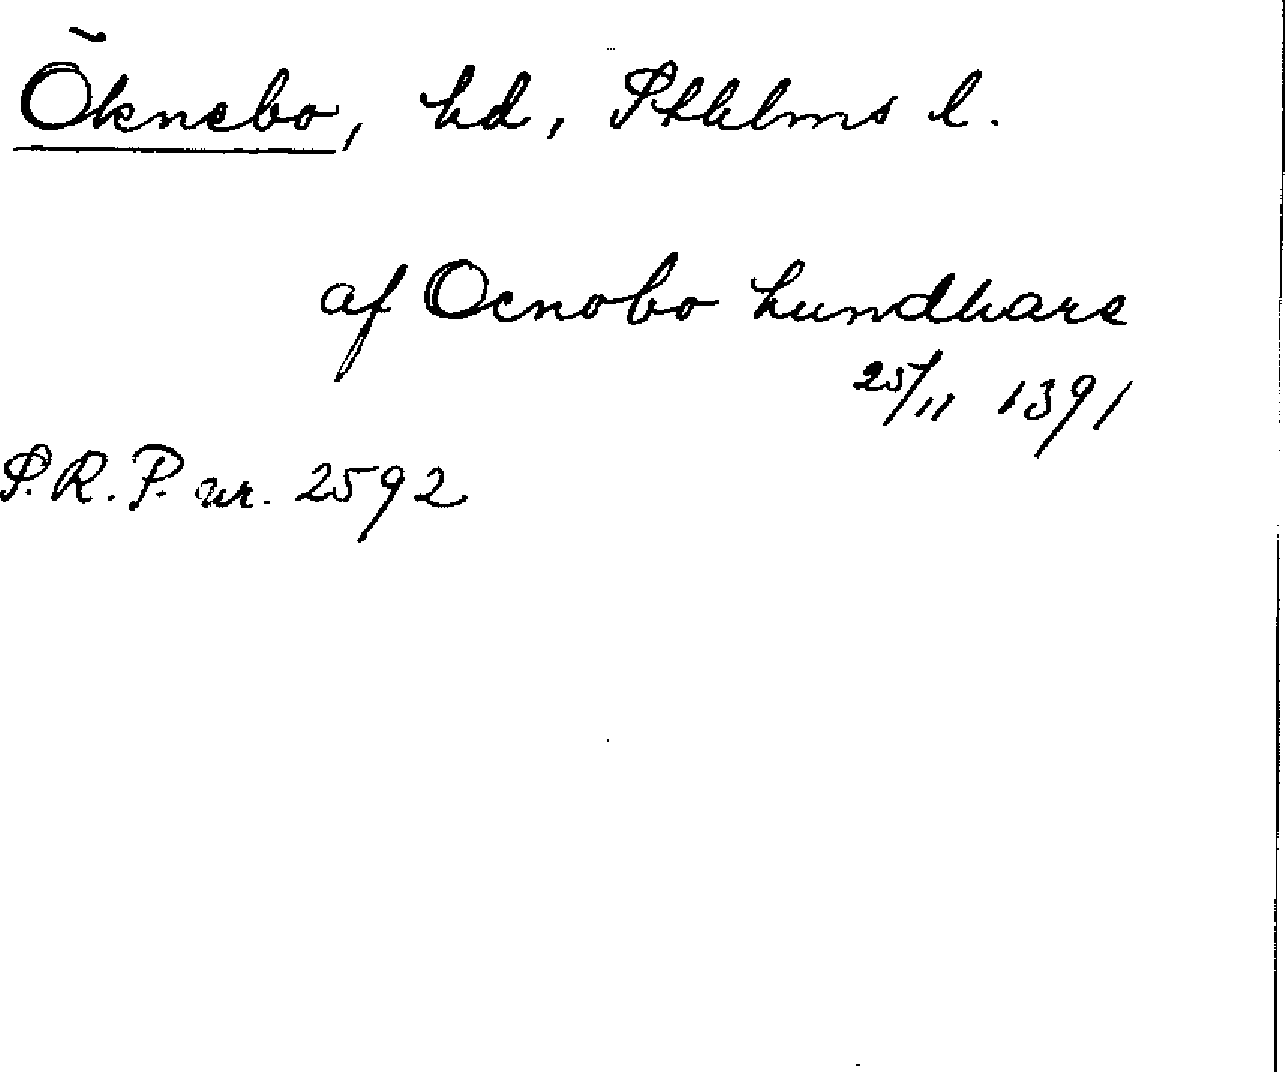 Öknebo, hd, Sthlms l.
af Ocnobo hundhare
25/11 1391
S.R.P. nr. 2592